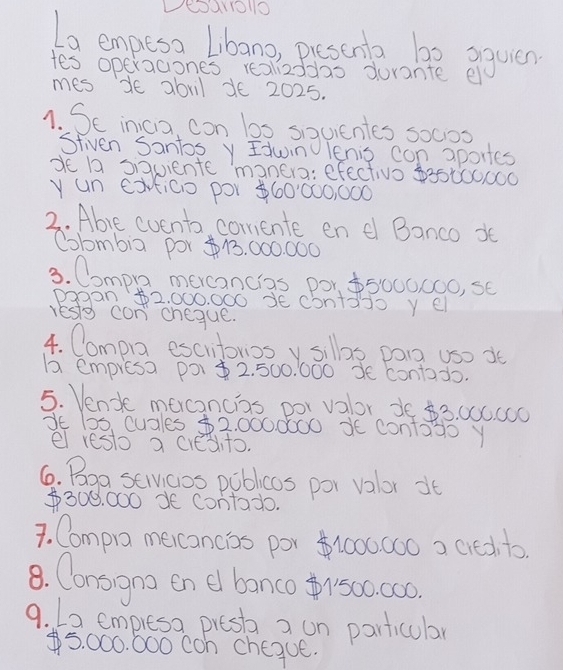 Desarrollo
La empresa Libano, presenta las siguien-
tes operaciones realizadas durante el
mes de abril de 2025.
1. Se inicia con los siguientes socios
Stiven Santos y Edwin lenis con aportes
de la siguiente manera: efectivo $35'000,000
y un edificio por $60'000,000
2. Abre cuenta corriente en el Banco de
Colombia por $13.000.000
3. Compra mercancías por, $5'000,000, se
pagan $2.000.000 de contado y el
resto con cheque.
4. Compra escritorios y sillas para uso de
la empresa por $2.500.000 de contado.
5. Vende mercancías por valor de $3.000.000
de los cuales $2.000.000 de contado y
el resto a crédito.
6. Paga servicios públicos por valor de
de contado.
7. Compra mercancías por $1.000.000 a credito.
8. Consigna en el banco $1'500.000.
9. La empresa presta a un particular
$5.000.000 con cheque.